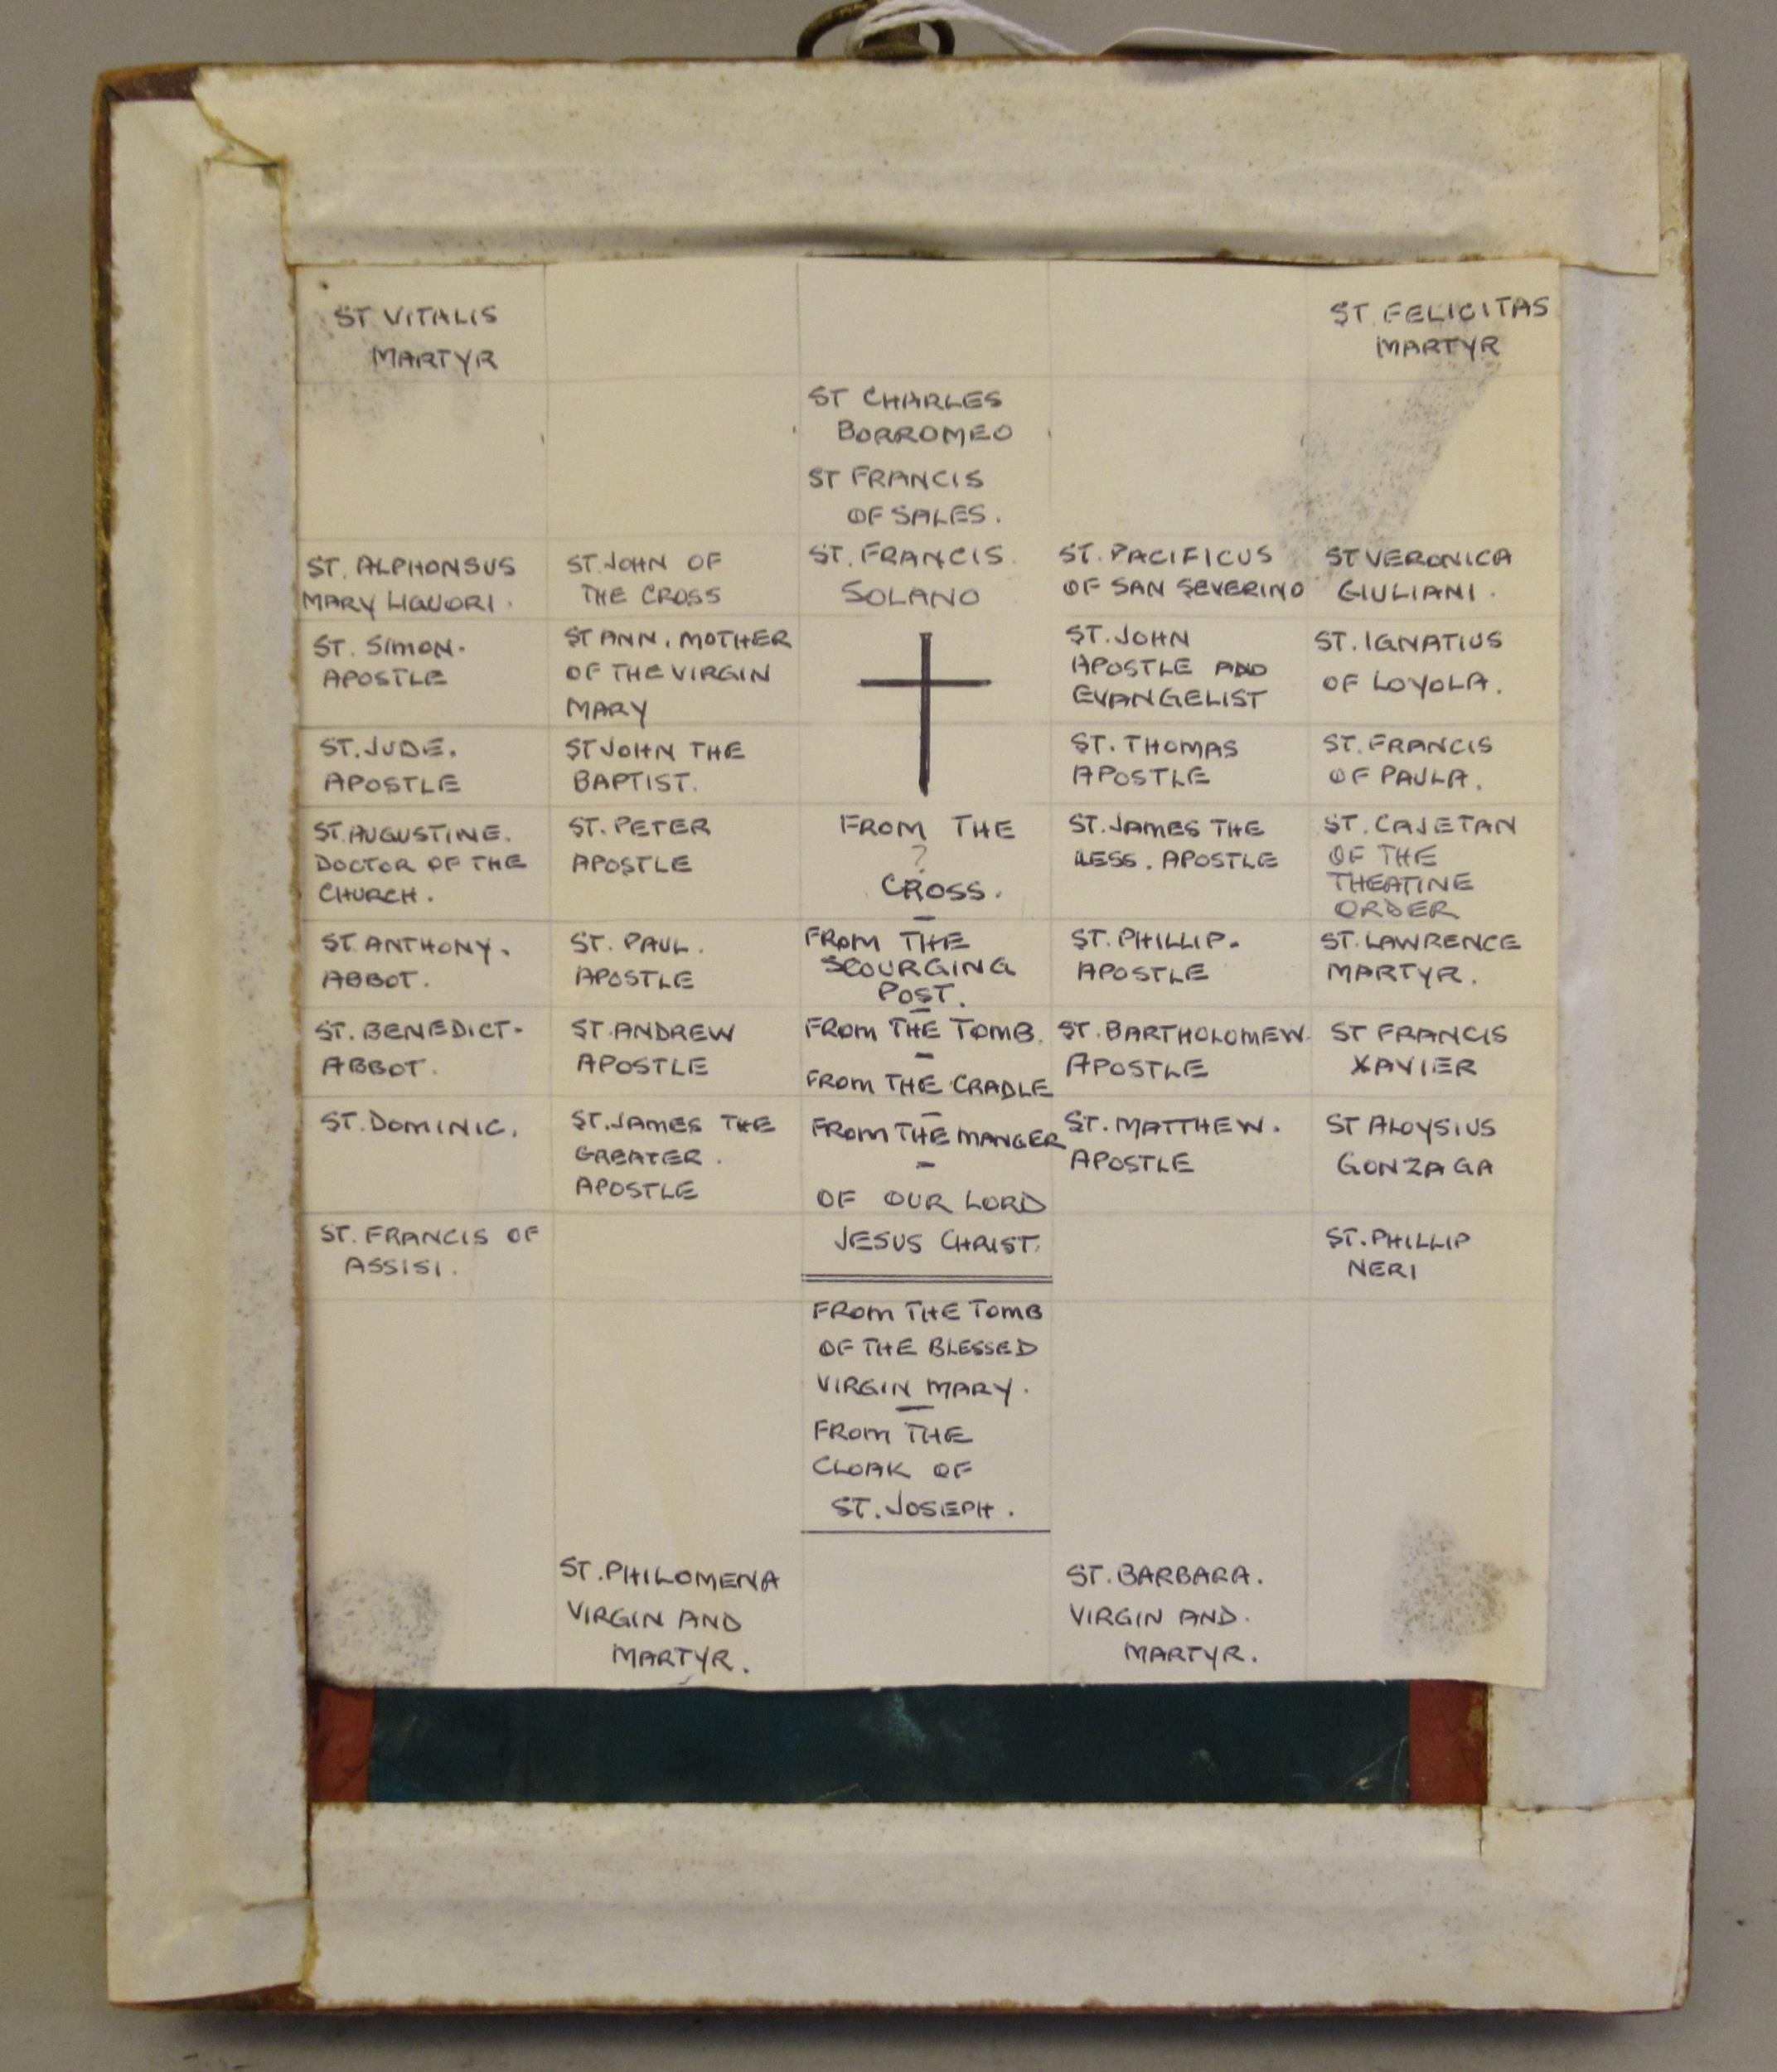 ST VITALIS
MARTYR
ST. FELICITAS
MARTYR
ST CHARLES
BORROMEO
ST FRANCIS
OF SALES.
ST. ALPHONSUS
MARY LIGUORI.
ST. JOHN OF
THE CROSS
ST. FRANCIS.
SOLANO
ST. PACIFICUS
OF SAN SEVERINO
ST VERONICA
GIULIANI.
ST. SIMON.
APOSTLE
ST ANN. MOTHER
OF THE VIRGIN
MARY
ST. JOHN
APOSTLE AND
EVANGELIST
ST. IGNATIUS
OF LOYOLA.
ST. JUDE.
APOSTLE
ST JOHN THE
BAPTIST.
ST. THOMAS
APOSTLE
ST. FRANCIS
OF PAULA.
ST. AUGUSTINE.
DOCTOR OF THE
CHURCH.
ST. PETER
APOSTLE
FROM THE
?
CROSS.
ST. JAMES THE
LESS. APOSTLE
ST. CAJETAN
OF THE
THEATINE
ORDER
ST. ANTHONY.
ABBOT.
ST. PAUL.
APOSTLE
FROM THE
SCOURGING
POST.
ST. PHILLIP.
APOSTLE
ST. LAWRENCE
MARTYR.
ST. BENEDICT.
ABBOT.
ST. ANDREW
APOSTLE
FROM THE TOMB.
FROM THE CRADLE
ST. BARTHOLOMEW.
APOSTLE
ST FRANCIS
XAVIER
ST. DOMINIC.
ST. JAMES THE
GREATER.
APOSTLE
FROM THE MANGER
OF OUR LORD
JESUS CHRIST.
ST. MATTHEW.
APOSTLE
ST ALOYSIUS
GONZAGA
ST. FRANCIS OF
ASSISI.
ST. PHILLIP
NERI
FROM THE TOMB
OF THE BLESSED
VIRGIN MARY.
FROM THE
CLOAK OF
ST. JOSEPH.
ST. PHILOMENA
VIRGIN AND
MARTYR.
ST. BARBARA.
VIRGIN AND.
MARTYR.